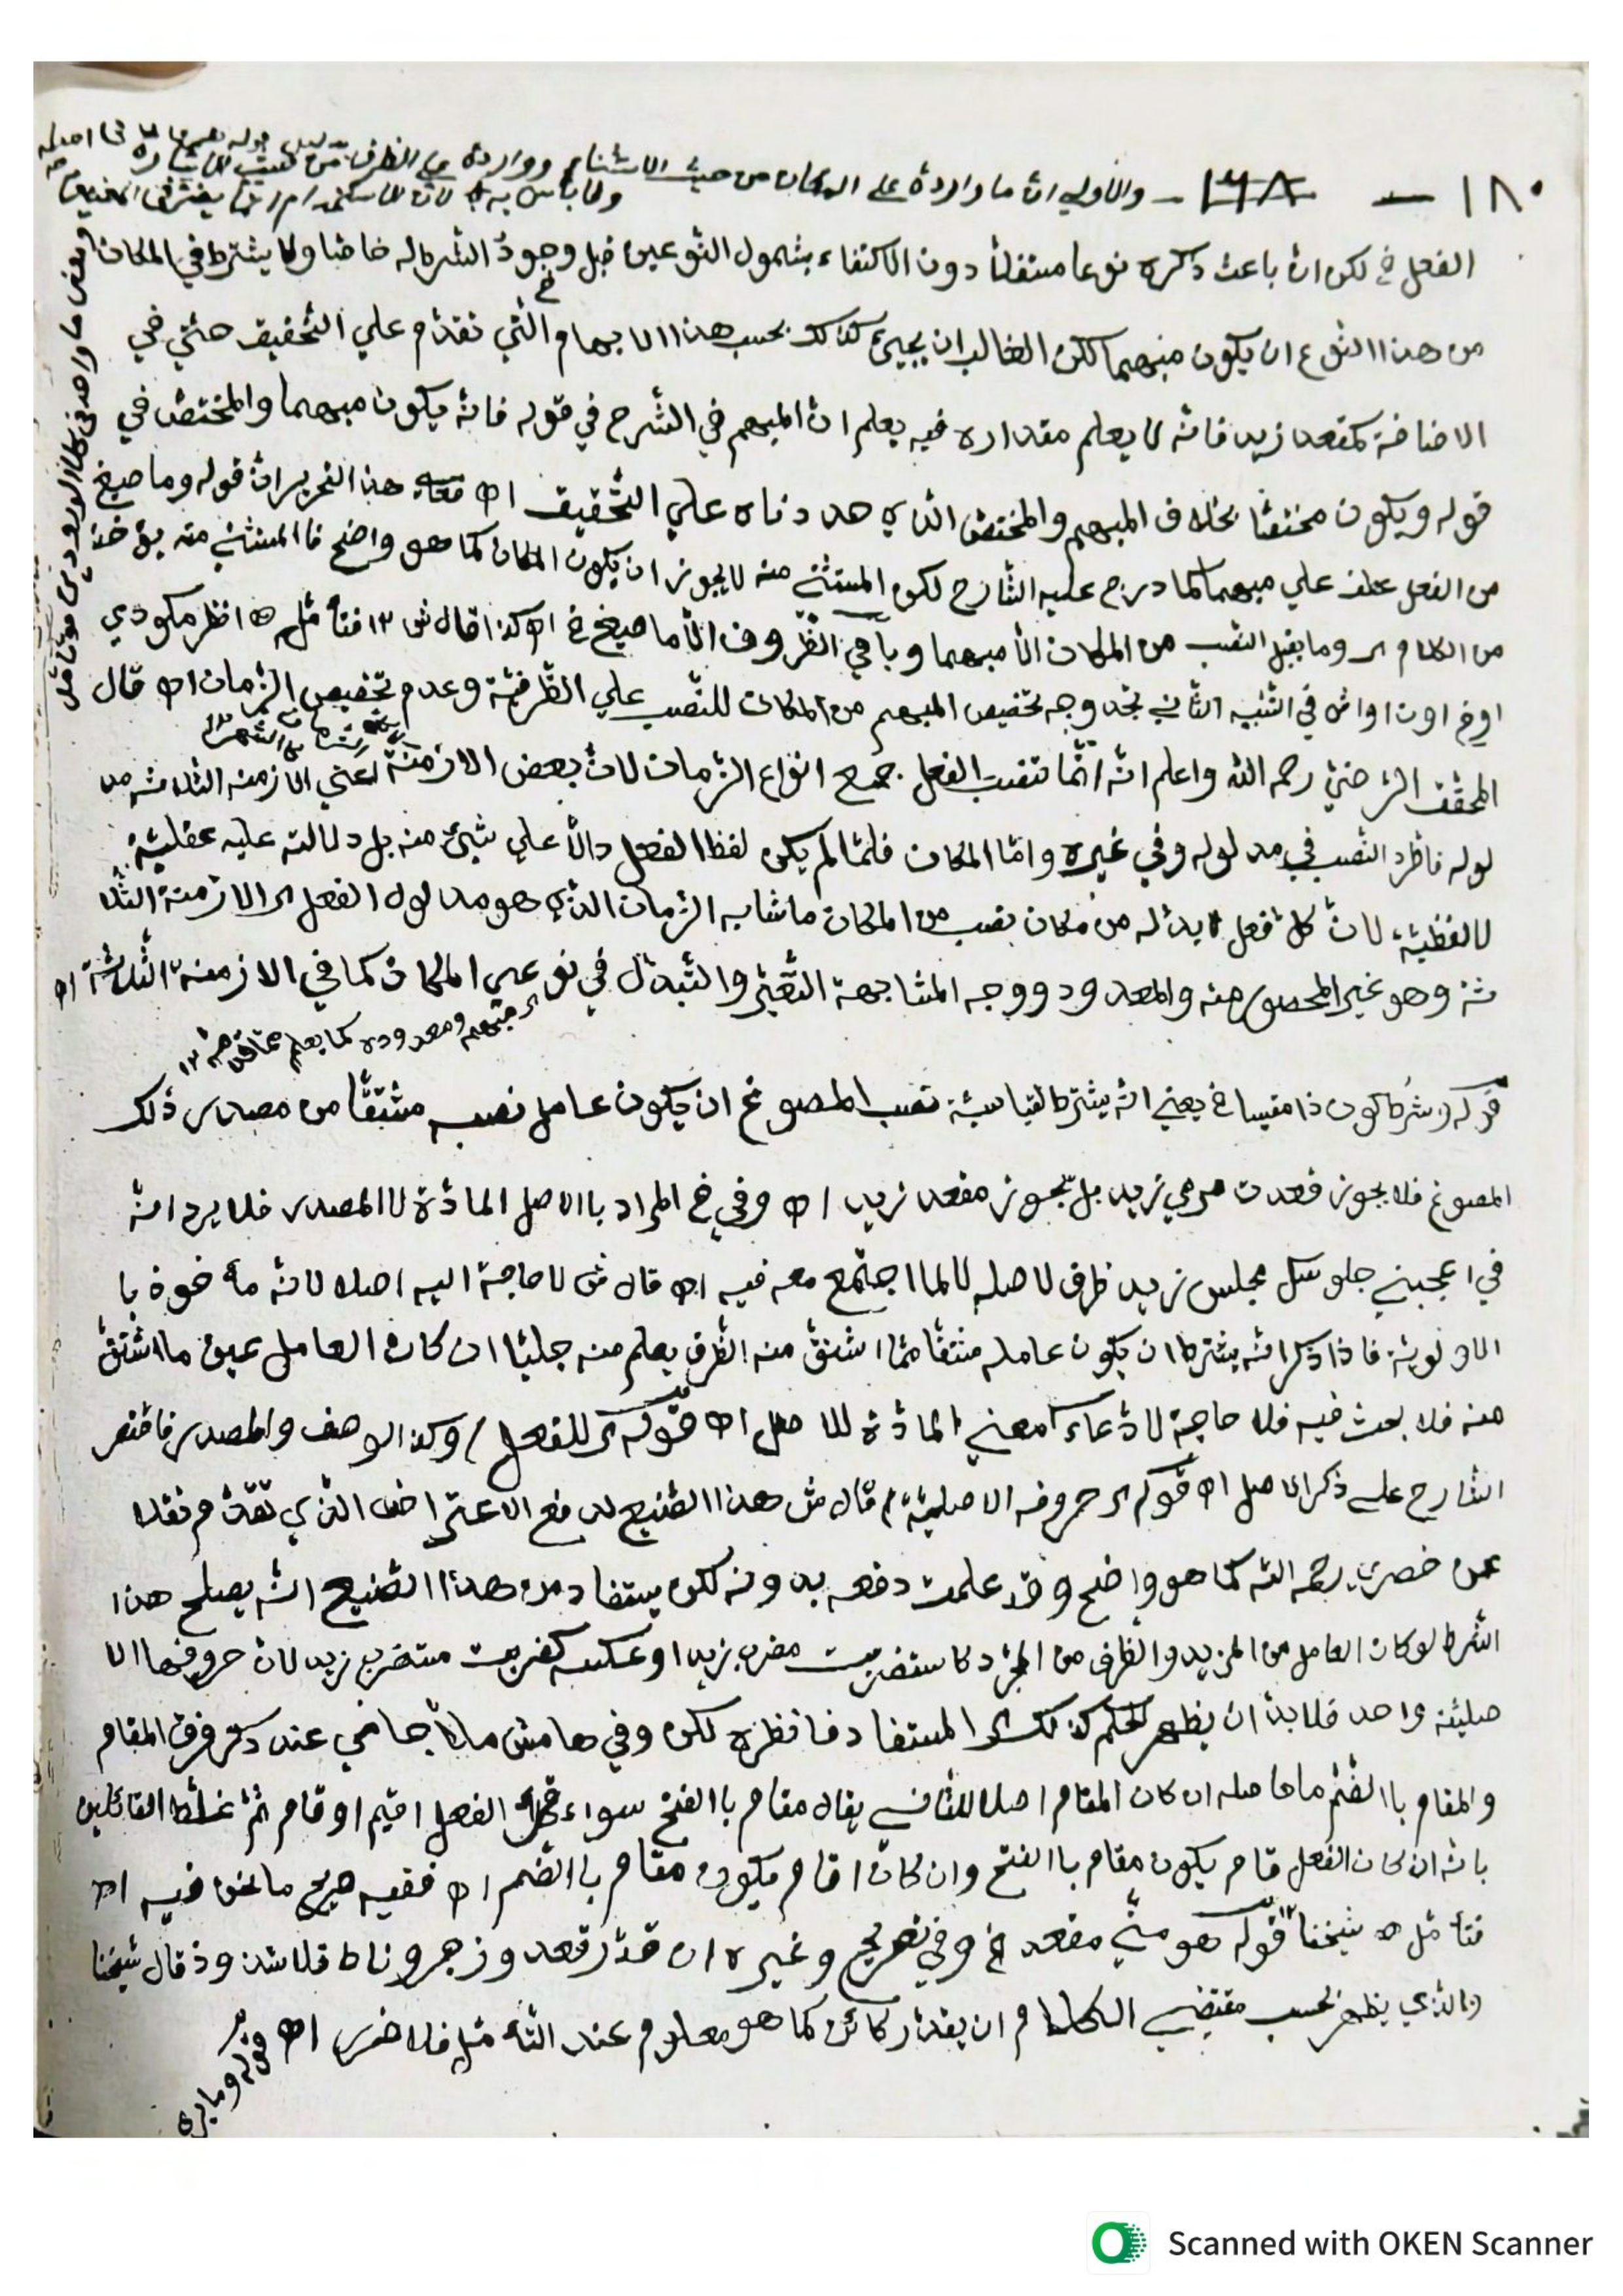 ١٨٠ — ١٧٨ - والاولى ان ما واردة على المكان من حيث الاستثناء وواردة على الظرف من حيث
ولا باس به لان
الفعل الخ لكن ان باعث ذكره نوعا مستقلا دون الاكتفاء بشمول النوعين قبل وجود الشرط له خاصا ولا يشترط في المكان
من هذا النوع ان يكون مبهما لكن الغالب ان يجيئ كذلك بحسب هذا الابهام الخ التي تقدم علي التحقيق حتي في
الاضافة كمقعد زيد فانه لا يعلم مقداره فيه يعلم ان المبهم في الشرح في قوله فانه يكون مبهما والمختص في
قوله ويكون مختصا بخلاف المبهم والمختص الذي هددناه علي التحقيق اه هذا التحرير ان قوله وما صيغ
من الفعل عطف علي مبهما كما درج عليه الشارح لكون المستثنى منه لا يجوز ان يكون المكان كما هو واضح فا المستثنى منه يؤخذ
من الكلام اى وما يقبل النصب من المكان الا مبهما وباقي الظروف الا ما صيغ الخ اه كذا قال ش ١٢ فتأمل اه انظر مكودي
في التنبيه الثاني تجد وجه تخصيص المبهم من المكان للنصب علي الظرفية وعدم تخصيص الزمان اه قال
المحقق الرضي رحمه الله واعلم انه انما تنصب الفعل جميع انواع الزمان لان بعض الازمنة اعني الازمنة الثلاثة مد
لوله فاطرد النصب في مدلوله وفي غيره واما المكان فلما لم يكن لفظ الفعل دالا علي شيئ منه بل دلالته عليه عقلية
لا لفظية لان كل فعل لا بد له من مكان نصب من المكان ما شابه الزمان الذي هو مدلول الفعل اى الازمنة الثلا
ثة وهو غير المحصور منه والمعدود ووجه المشابهة التغير والتبدل في نوعي المكان كما في الازمنة الثلاثة اه
اى مبهم ومعدوده كما يعلم مما قدمه ١٢
قوله وشرط كون ذا مقيسا الخ يعني انه يشترط لقياسية نصب المصوغ ان يكون عامل نصبه مشتقا من مصدر ذلك
المصوغ فلا يجوز قعدت مرمي زيد بل يجوز مقعد زيد اه وفي خ المراد با الاصل المادة لا المصدر فلا يرد انه
في اعجبني جلوسك مجلس زيد ظرف لاصله لا لما اجتمع معه فيه اه قال ش لا حاجة اليه اصلا لانه مأخوذ با
الاولوية فاذا ذكر انه يشترط ان يكون عامله مشتقا مما اشتق منه الظرف يعلم منه جليا ان كان العامل عين ما اشتق
منه فلا بحث فيه فلا حاجة لادعاء معني المادة للاصل اه قوله اى للفعل / وكذا الوصف والمصدر فاقتصر
الشارح على ذكر الاصل اه قوله اى حروفه الاصلية / قال ش هذا الصنيع لدفع الاعتراض الذي تقدم نقلا
عن خضري رحمه الله كما هو واضح وقد علمت دفعه بدونه لكن يستفاد من هذا الصنيع انه يصلح هذا
الشرط لو كان العامل من المزيد والظرف من المجرد كاستضربت مضرب زيد او عكسه كضربت مستضرب زيد لان حروفها الا
صلية واحد فلا بد ان يظهر لحكم كذلك المستفاد فانظره لكن وفي هامش ملا جامي عند ذكر فرق المقام
والمقام با الضم ما حاصله ان كان المقام اصلا للثاني يقال مقام با الفتح سواء الفعل اقيم او قام ثم غلط القائلين
بانه ان كان الفعل قام يكون مقام با الفتح وان كان اقام يكون مقام با الضم اه ففيه صريح ما نحن فيه اه
فتأمل اه شيخنا قوله هو مني مقعد الخ وفي تصريح وغيره ان قدر قعد وزجر وناط فلا شذوذ قال شيخنا
والذي يظهر بحسب مقتضي الكلام ان يقدر كائن كما هو معلوم عند التأمل فلا ضرر اه
قوله وما يرى